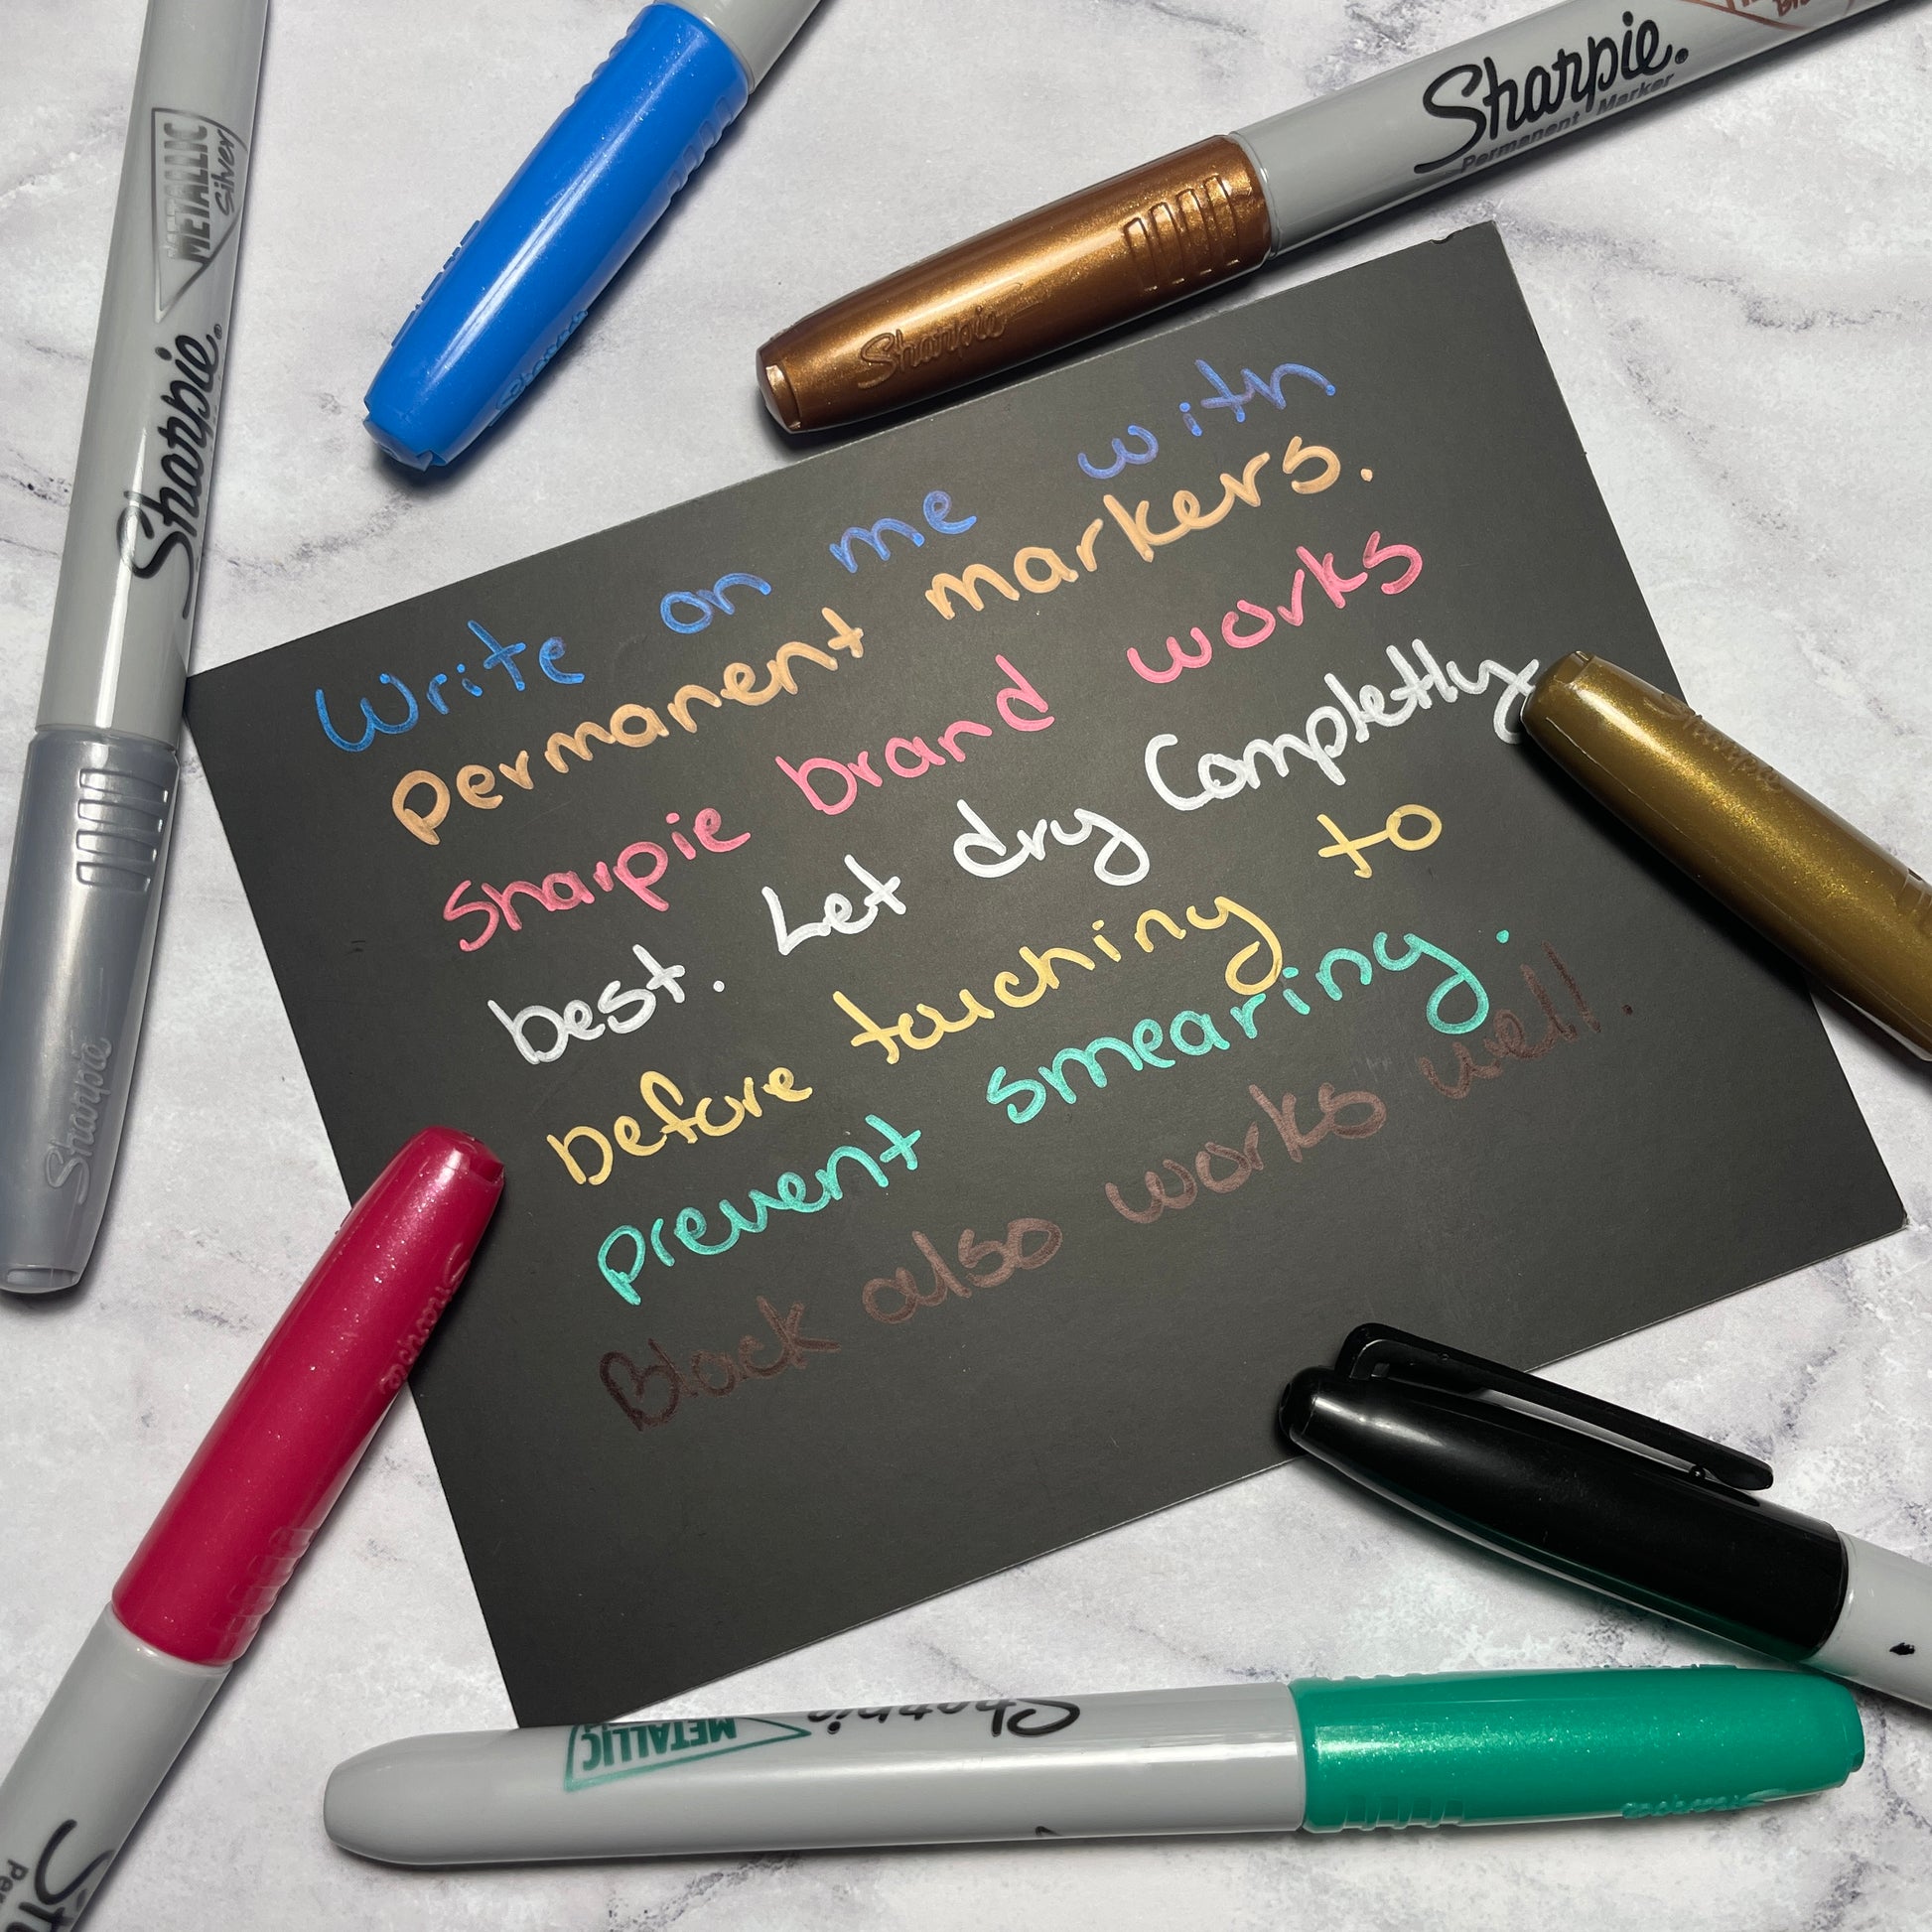 METALLIC
Silver
Sharpie®
Sharpie
Sharpie.®
Permanent Marker
Sharpie
Write on me with
permanent markers.
Sharpie brand works
best. Let dry Completly
before touching to
prevent smearing.
Black also works well.
Sharpie
Sharpie
METALLIC
Sharpie